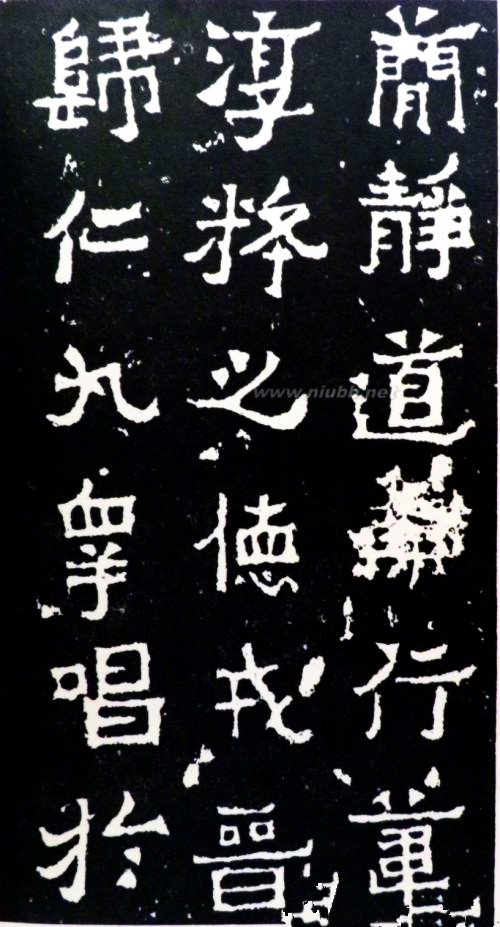 簡靜道兼行葦
淳粹之德戎晉
歸仁九皋唱於
www.niubh.net